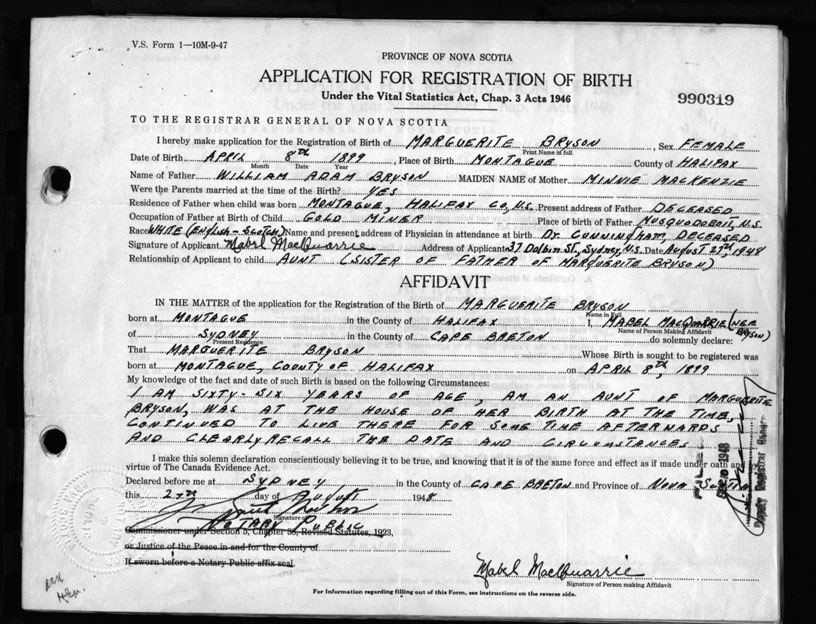 V.S. Form 1—10M-9-47
PROVINCE OF NOVA SCOTIA
APPLICATION FOR REGISTRATION OF BIRTH
Under the Vital Statistics Act, Chap. 3 Acts 1946
990319
TO THE REGISTRAR GENERAL OF NOVA SCOTIA
I hereby make application for the Registration of Birth of MARGUERITE BRYSON, Sex FEMALE
Print Name in full
Date of Birth APRIL 8th 1899, Place of Birth MONTAGUE County of HALIFAX
Month Date Year
Name of Father WILLIAM ADAM BRYSON MAIDEN NAME of Mother MINNIE MACKENZIE
Were the Parents married at the time of the Birth? YES
Residence of Father when child was born MONTAGUE, HALIFAX CO, N.S. Present address of Father DECEASED
Occupation of Father at Birth of Child GOLD MINER Place of birth of Father MUSQUODOBOIT, N.S.
Race WHITE (ENGLISH-SCOTCH) Name and present address of Physician in attendance at birth Dr. CUNNINGHAM, DECEASED
Signature of Applicant Mabel MacQuarrie Address of Applicant 37 Dolbin St, Sydney, N.S. Date August 27th, 1948
Relationship of Applicant to child AUNT (SISTER OF FATHER OF MARGUERITE BRYSON)
AFFIDAVIT
IN THE MATTER of the application for the Registration of the Birth of MARGUERITE BRYSON
Name in Full
born at MONTAGUE in the County of HALIFAX I, MABEL MACQUARRIE (NEE BRYSON)
Name of Person Making Affidavit
of SYDNEY in the County of CAPE BRETON do solemnly declare:
Present Residence
That MARGUERITE BRYSON Whose Birth is sought to be registered was
born at MONTAGUE, COUNTY OF HALIFAX on APRIL 8th, 1899
My knowledge of the fact and date of such Birth is based on the following Circumstances:
I AM SIXTY-SIX YEARS OF AGE, AM AN AUNT OF MARGUERITE
BRYSON, WAS AT THE HOUSE OF HER BIRTH AT THE TIME,
CONTINUED TO LIVE THERE FOR SOME TIME AFTERWARDS
AND CLEARLY RECALL THE DATE AND CIRCUMSTANCES
I make this solemn declaration conscientiously believing it to be true, and knowing that it is of the same force and effect as if made under oath and
virtue of The Canada Evidence Act.
Declared before me at SYDNEY in the County of CAPE BRETON and Province of NOVA SCOTIA
this 27th day of August 1948
Signature of
NOTARY PUBLIC
Commissioner under Section 5, Chapter 35, Revised Statutes, 1923,
or Justice of the Peace in and for the County of
If sworn before a Notary Public affix seal.
Mabel MacQuarrie
Signature of Person making Affidavit
For Information regarding filling out of this Form, see instructions on the reverse side.
1948
Deputy Registrar